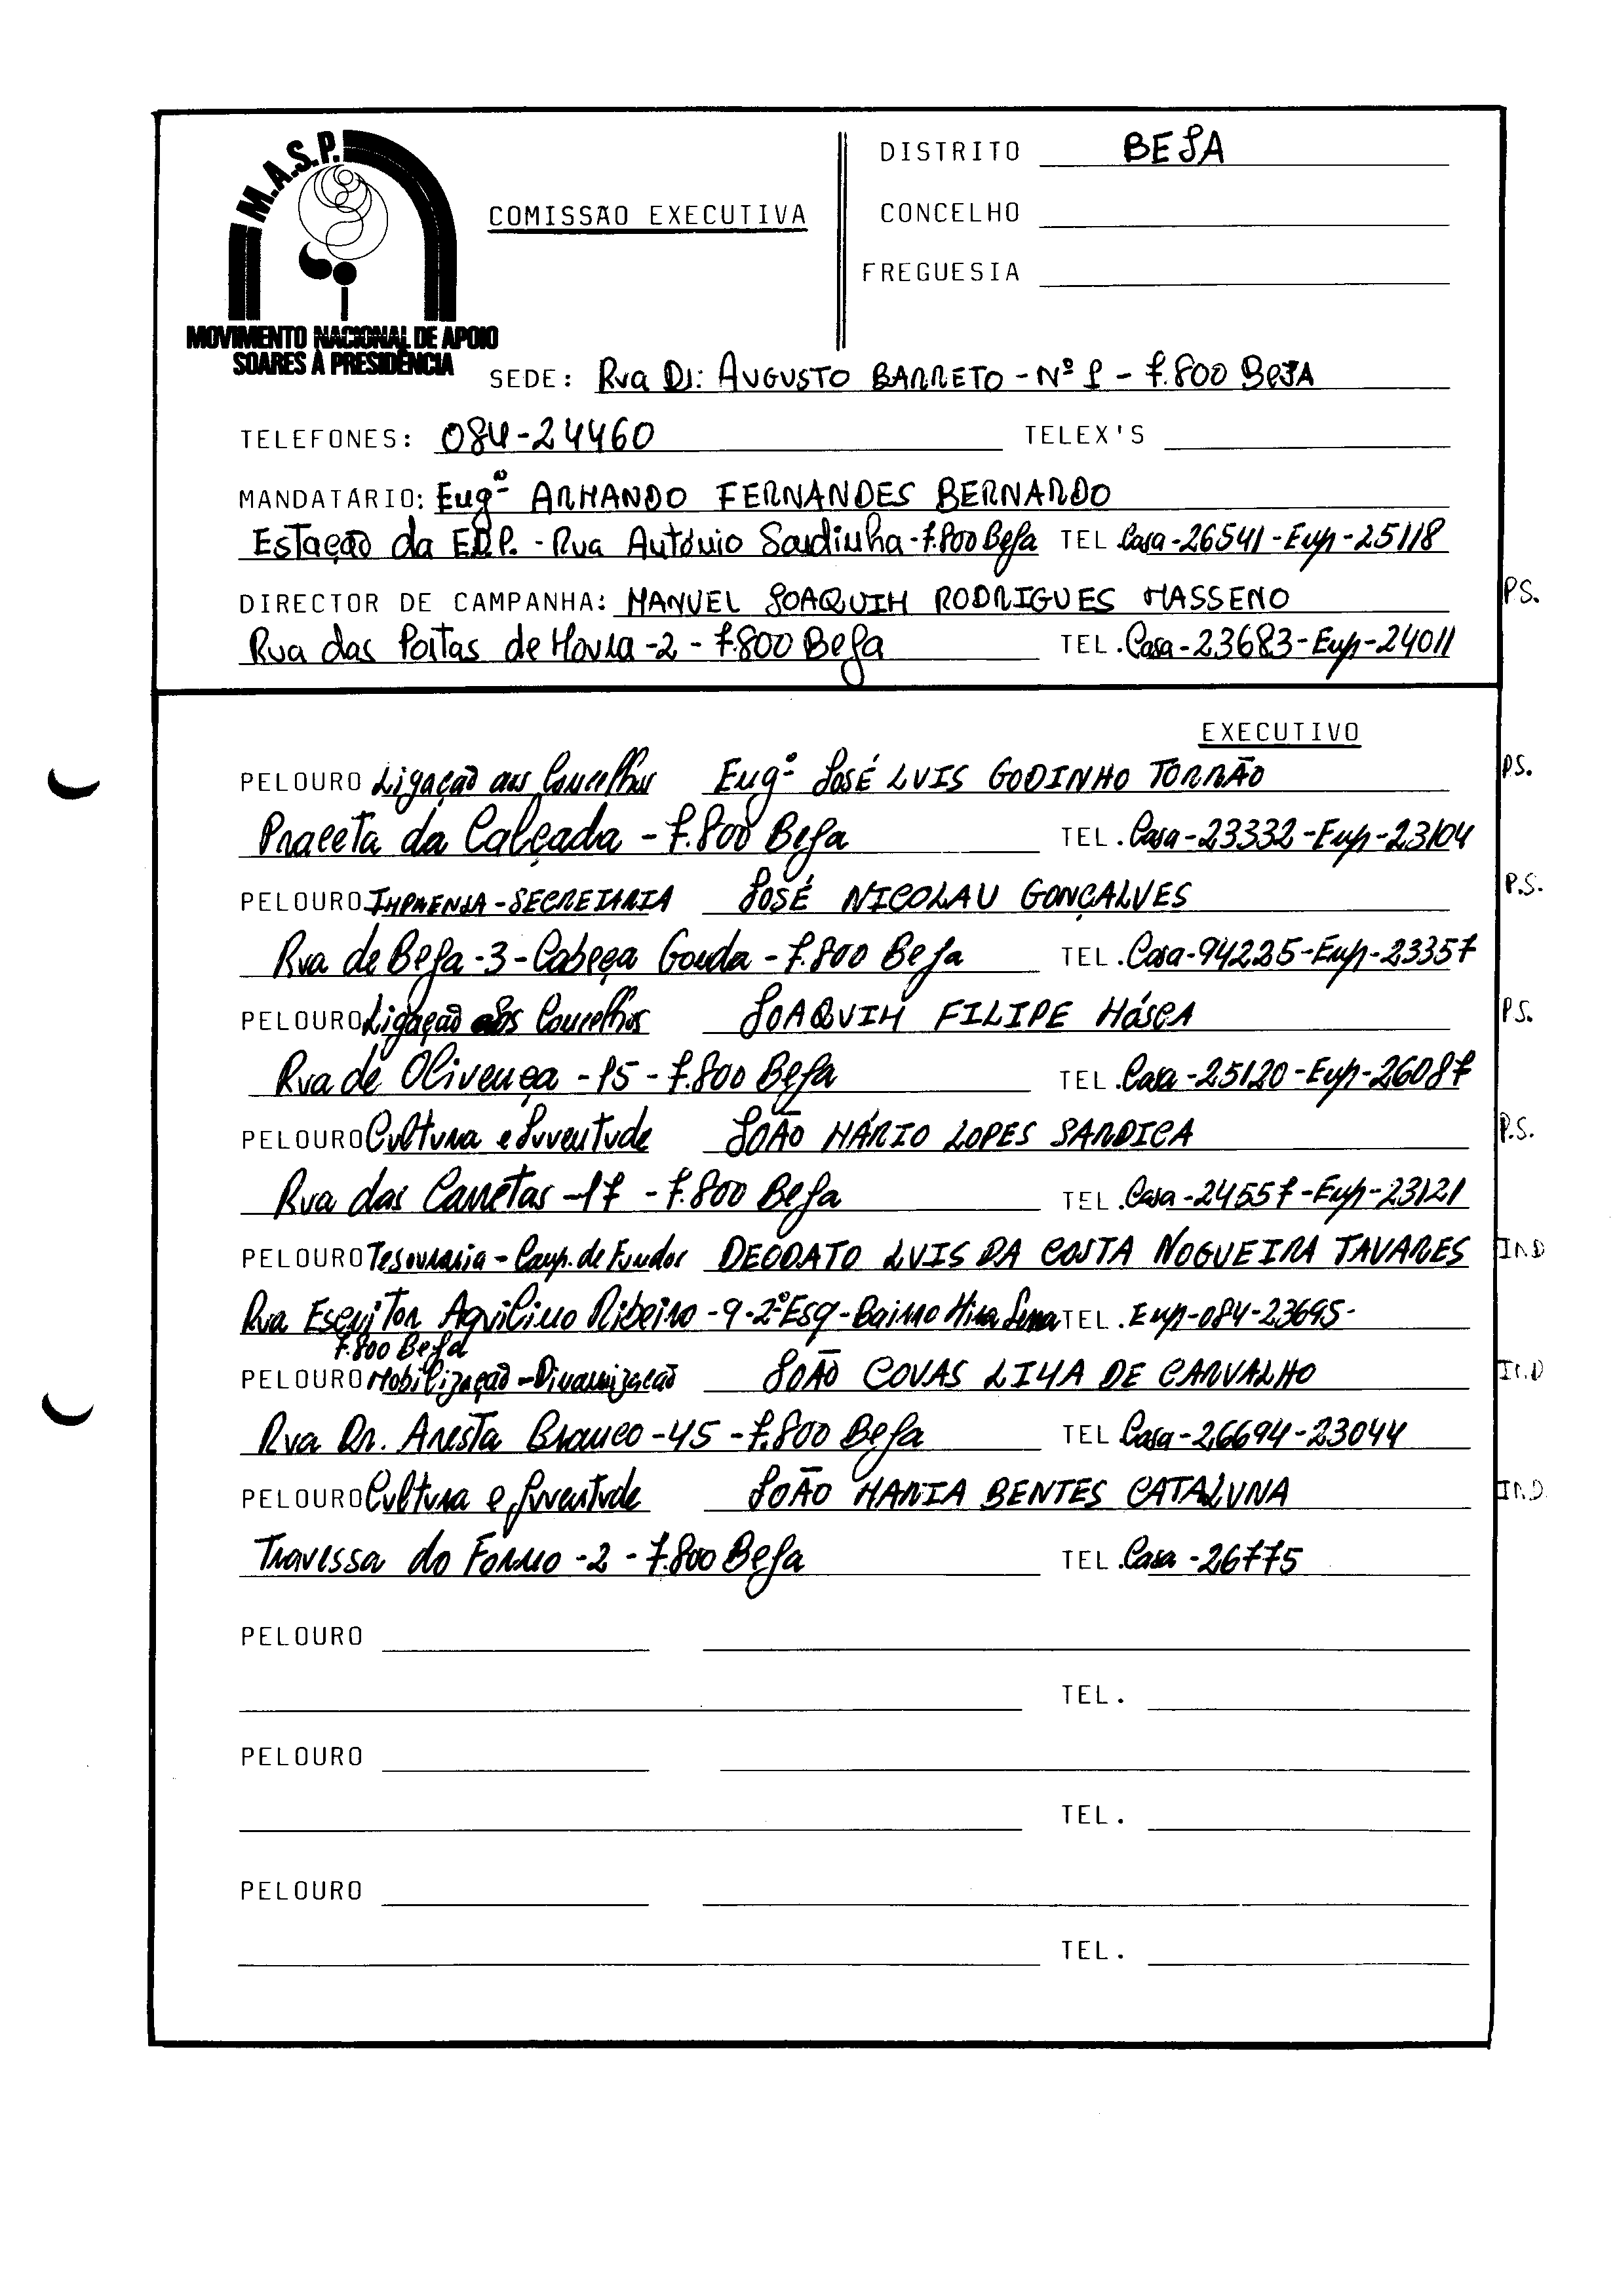 M.A.S.P.
MOVIMENTO NACIONAL DE APOIO
SOARES À PRESIDÊNCIA
COMISSÃO EXECUTIVA
DISTRITO BEJA
CONCELHO
FREGUESIA
SEDE: Rua Dr: AUGUSTO BARRETO - Nº 1 - 7.800 BeJA
TELEFONES: 084-24460 TELEX'S
MANDATÁRIO: Engº ARMANDO FERNANDES BERNARDO
Estação da EDP. - Rua António Sardinha - 7.800 Beja TEL Casa - 26541 - Emp - 25118
DIRECTOR DE CAMPANHA: MANUEL JOAQUIM RODRIGUES MASSENO P.S.
Rua das Portas de Moura - 2 - 7.800 Beja TEL. Casa - 23683 - Emp - 24011
EXECUTIVO
PELOURO Ligação aos Concelhos Engº JOSÉ LUIS GODINHO TORRÃO P.S.
Praceta da Calçada - 7.800 Beja TEL. Casa - 23332 - Emp - 23104
PELOURO IMPRENSA - SECRETARIA JOSÉ NICOLAU GONÇALVES P.S.
Rua de Beja - 3 - Cabeça Gorda - 7.800 Beja TEL. Casa - 94225 - Emp - 23357
PELOURO Ligação aos Concelhos JOAQUIM FILIPE MÓSCA P.S.
Rua de Olivença - 15 - 7.800 Beja TEL. Casa - 25120 - Emp - 26087
PELOURO Cultura e Juventude JOÃO MÁRIO LOPES SARDICA P.S.
Rua das Carretas - 17 - 7.800 Beja TEL. Casa - 24557 - Emp - 23121
PELOURO Tesouraria - Camp. de Fundos DEODATO LUIS DA COSTA NOGUEIRA TAVARES IND
Rua Escritor Aquilino Ribeiro - 9 - 2º Esq - Bairro Mira Serra TEL. Emp - 084 - 23695 -
7.800 Beja
PELOURO Mobilização - Dinamização JOÃO COVAS LIMA DE CARVALHO IND
Rua Dr. Aresta Branco - 45 - 7.800 Beja TEL Casa - 26694 - 23044
PELOURO Cultura e Juventude JOÃO MARIA BENTES CATALUNA IND
Travessa do Forno - 2 - 7.800 Beja TEL. Casa - 26775
PELOURO
TEL.
PELOURO
TEL.
PELOURO
TEL.